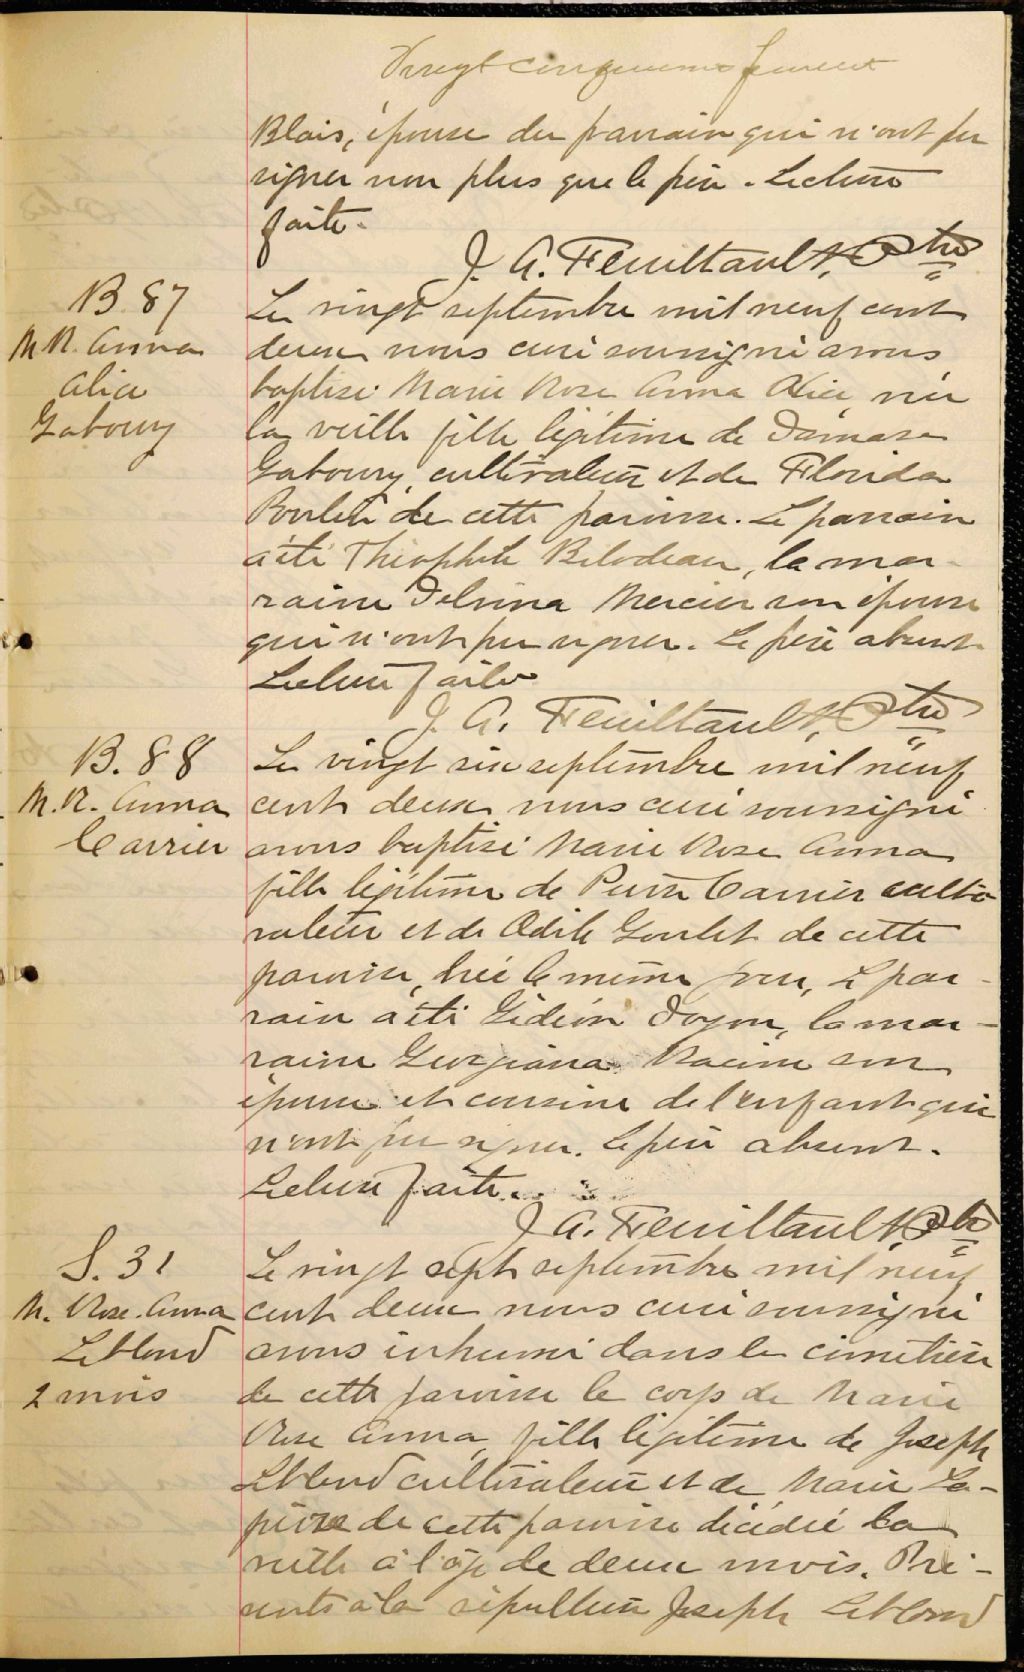 Vingt cinquieme feuillet
Blais, épouse du parrain qui n'ont pu
signer non plus que le père. Lecture
faite.
J. A. Feuiltault, Ptre
B. 87
M. R. Anna
Alice
Gaboury
Le vingt septembre mil neuf cent
deux nous curé soussigné avons
baptisé Marie Rose Anna Alice née
la veille fille légitime de Damase
Gaboury, cultivateur et de Florida
Poulin de cette paroisse. Le parrain
a été Théophile Bilodeau, la mar-
raine Delvina Mercier son épouse
qui n'ont pu signer. Le père absent.
Lecture faite
J. A. Feuiltault, Ptre
B. 88
M. R. Anna
Carrier
Le vingt six septembre mil neuf
cent deux nous curé soussigné
avons baptisé Marie Rose Anna
fille légitime de Pierre Carrier culti-
vateur et de Odile Goulet de cette
paroisse, née le même jour, Le par-
rain a été Gédéon Doyon, la mar-
raine Georgiana Racine son
épouse et cousine de l'enfant qui
n'ont pu signer. Le père absent.
Lecture faite.
J. A. Feuiltault, Ptre
S. 31
M. Rose. Anna
Leblond
2 mois
Le vingt sept septembre mil neuf
cent deux nous curé soussigné
avons inhumé dans le cimetière
de cette paroisse le corps de Marie
Rose Anna, fille légitime de Joseph
Leblond cultivateur et de Marie La-
pierre de cette paroisse décédée la
veille à l'âge de deux mois. Pré-
sents à la sépulture Joseph Leblond